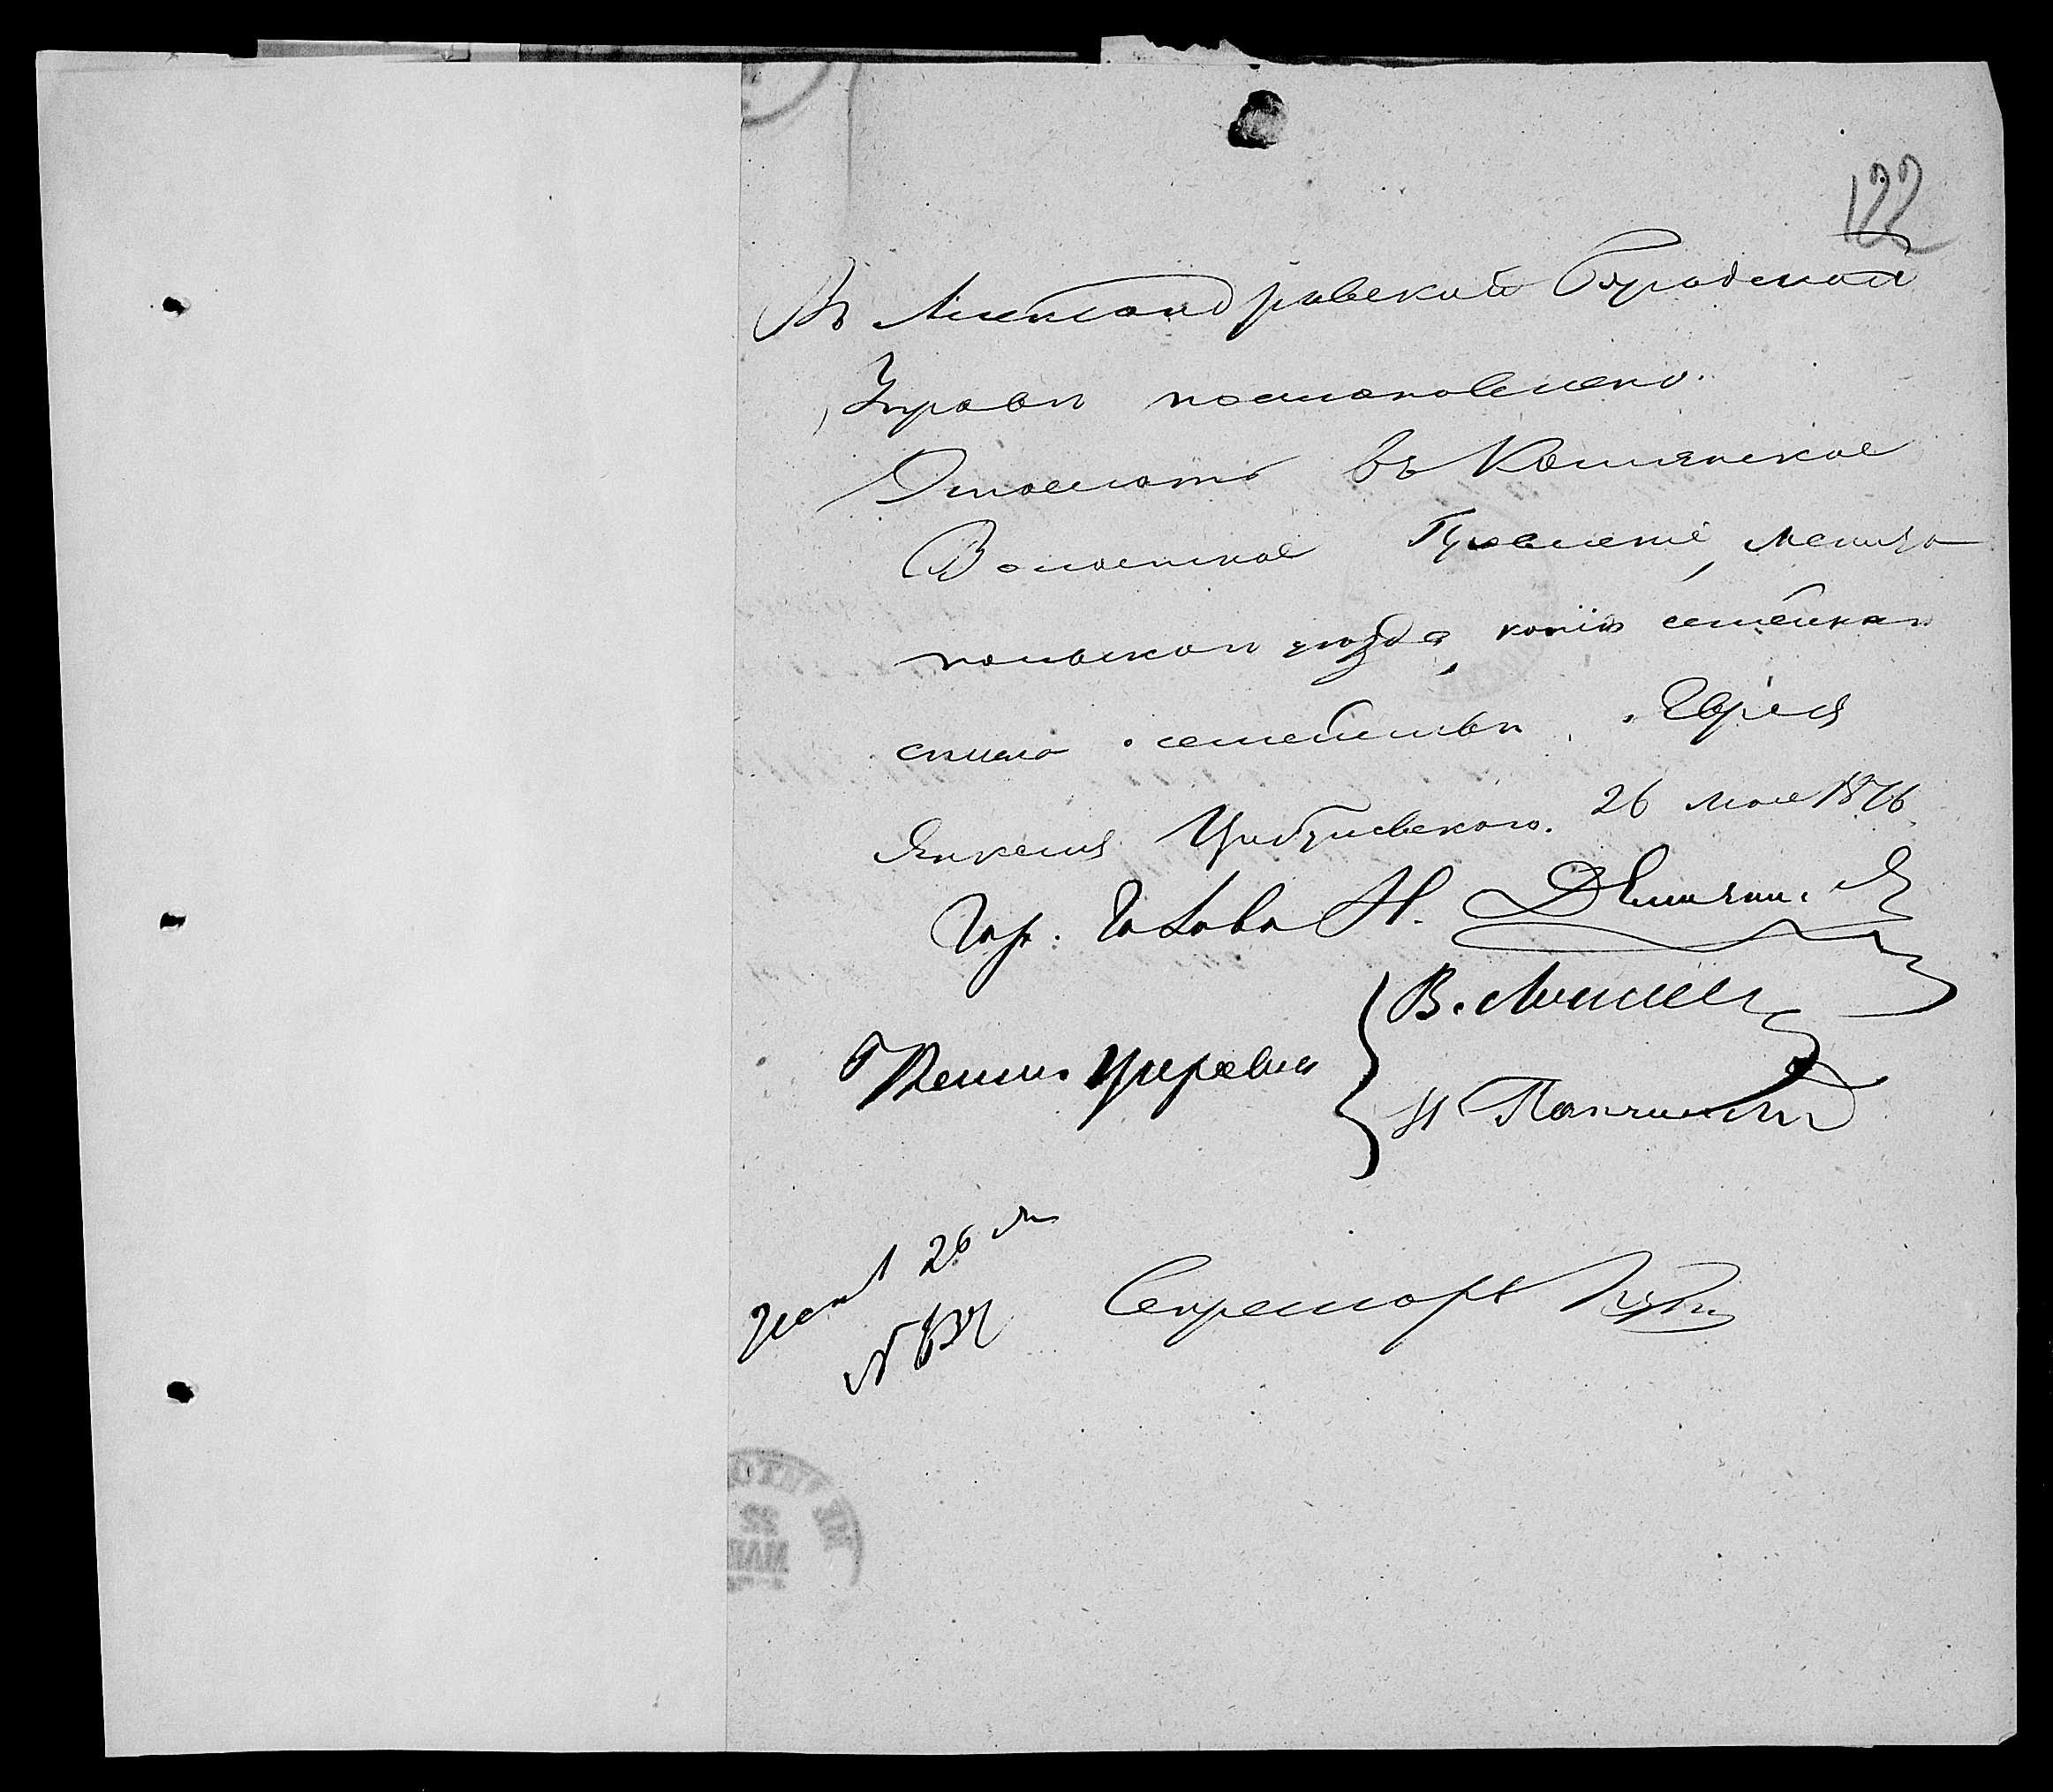 122
Въ Александровской Городской
Управѣ постановлено.
Отослать въ Камянское
Волостное Правленіе, Мелито
польскаго уѣзда, копію семейнаго
списка о семействѣ Еврея
Янкеля 26 Мая 1876.
Гор. Голова Н. Д
Члены Управы
В.
И
Исп 26 Мая
№
Секретарь